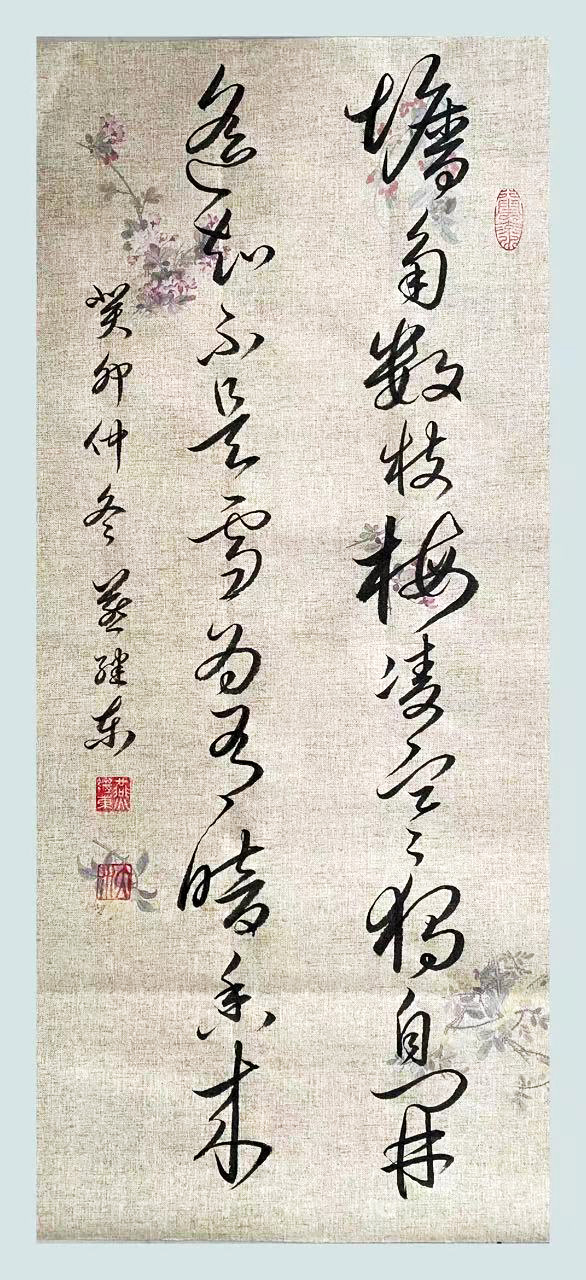 墙角数枝梅凌寒独自開
遥知不是雪为有暗香来
癸卯仲冬燕东